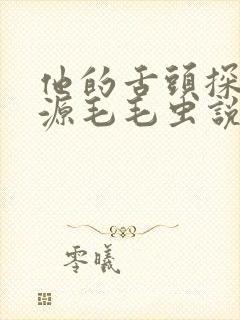 他的舌頭探
源毛毛虫說
零曦